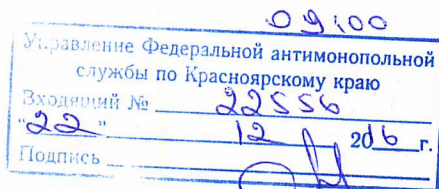 09:00
Управление Федеральной антимонопольной
службы по Красноярскому краю
Входящий № 22556
"22" 12 2016 г.
Подпись